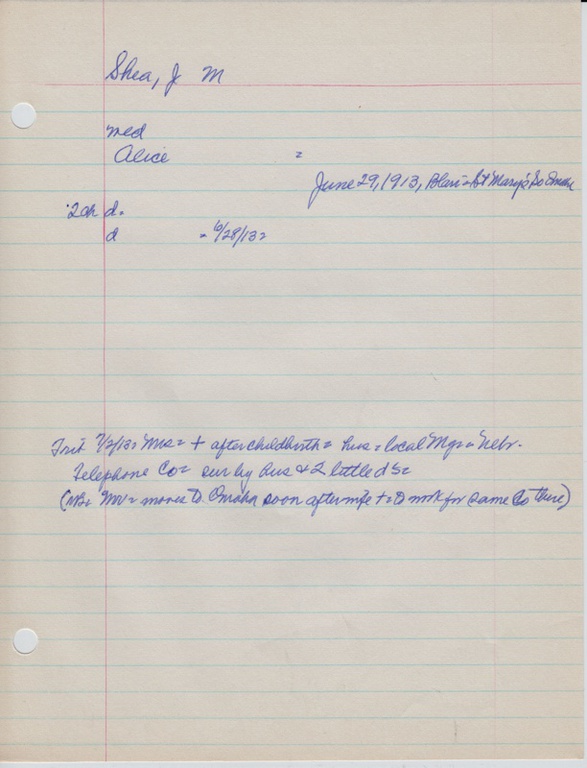 Shea, J M
med
Alice =
June 29, 1913, Blair = St Mary's So Omaha
2 ch d.
d = 6/28/13=
Trib 7/2/13= Mrs= + after childbirth= hus = local Mgr = Nebr.
Telephone Co= sur by hus & 2 little d s=
(NB= Mr = moves to Omaha soon after wife + = to work for same Co there)